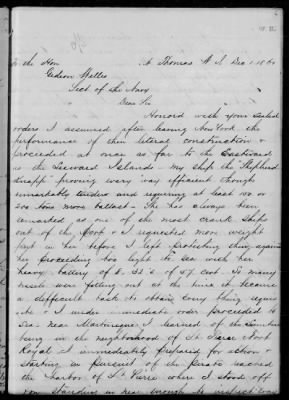 To the Hon St Thomas W I Dec 1 186
Gideon Welles
Sect of the Navy
Dear Sir
Honord with your sealed
orders I assumed after leaving New York the
performance of their literal construction &
proceeded at once as far to the Eastward
as the Leeward Islands - My ship the "Shepherd
Knapp" proving very inefficient through
remarkably tender and requiring at least 100 or
200 tons more ballast - She has always been
remarked as one of the most crank ships
out of the port & I requested more weight
put in her before I left protesting then against
her proceeding too light to sea with her
heavy battery of 8. 33's of 57 cwt So many
vessels were fitting out at the time it became
a difficult task to obtain every thing requi
site & I under immediate order proceeded to
Sea - near Martinique I learned of the Sumter
being in the neighborhood of Port
Royal I immediately prepared for action &
starting in pursuit of the pirate reached
the harbor of St Pierre where I stood off
standing in near enough to instruct